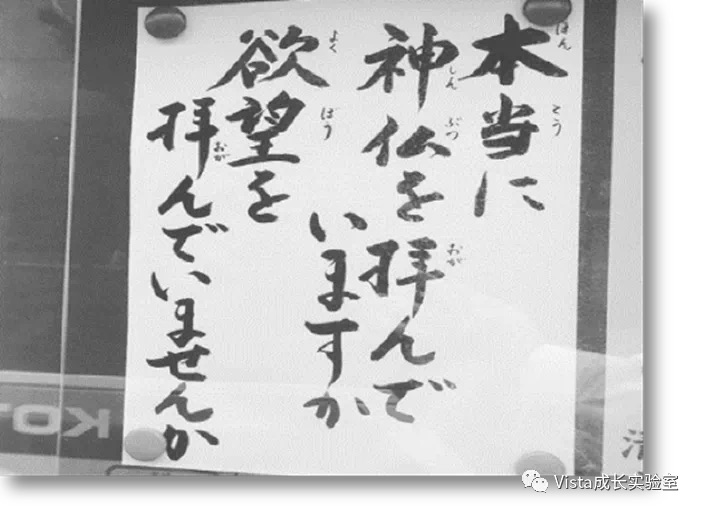 本当に
神仏を拝んで
いますか
欲望を
拝んでいませんか
ほん
とう
しんぶつ
おが
よくぼう
おが
KO
清
Vista成长实验室